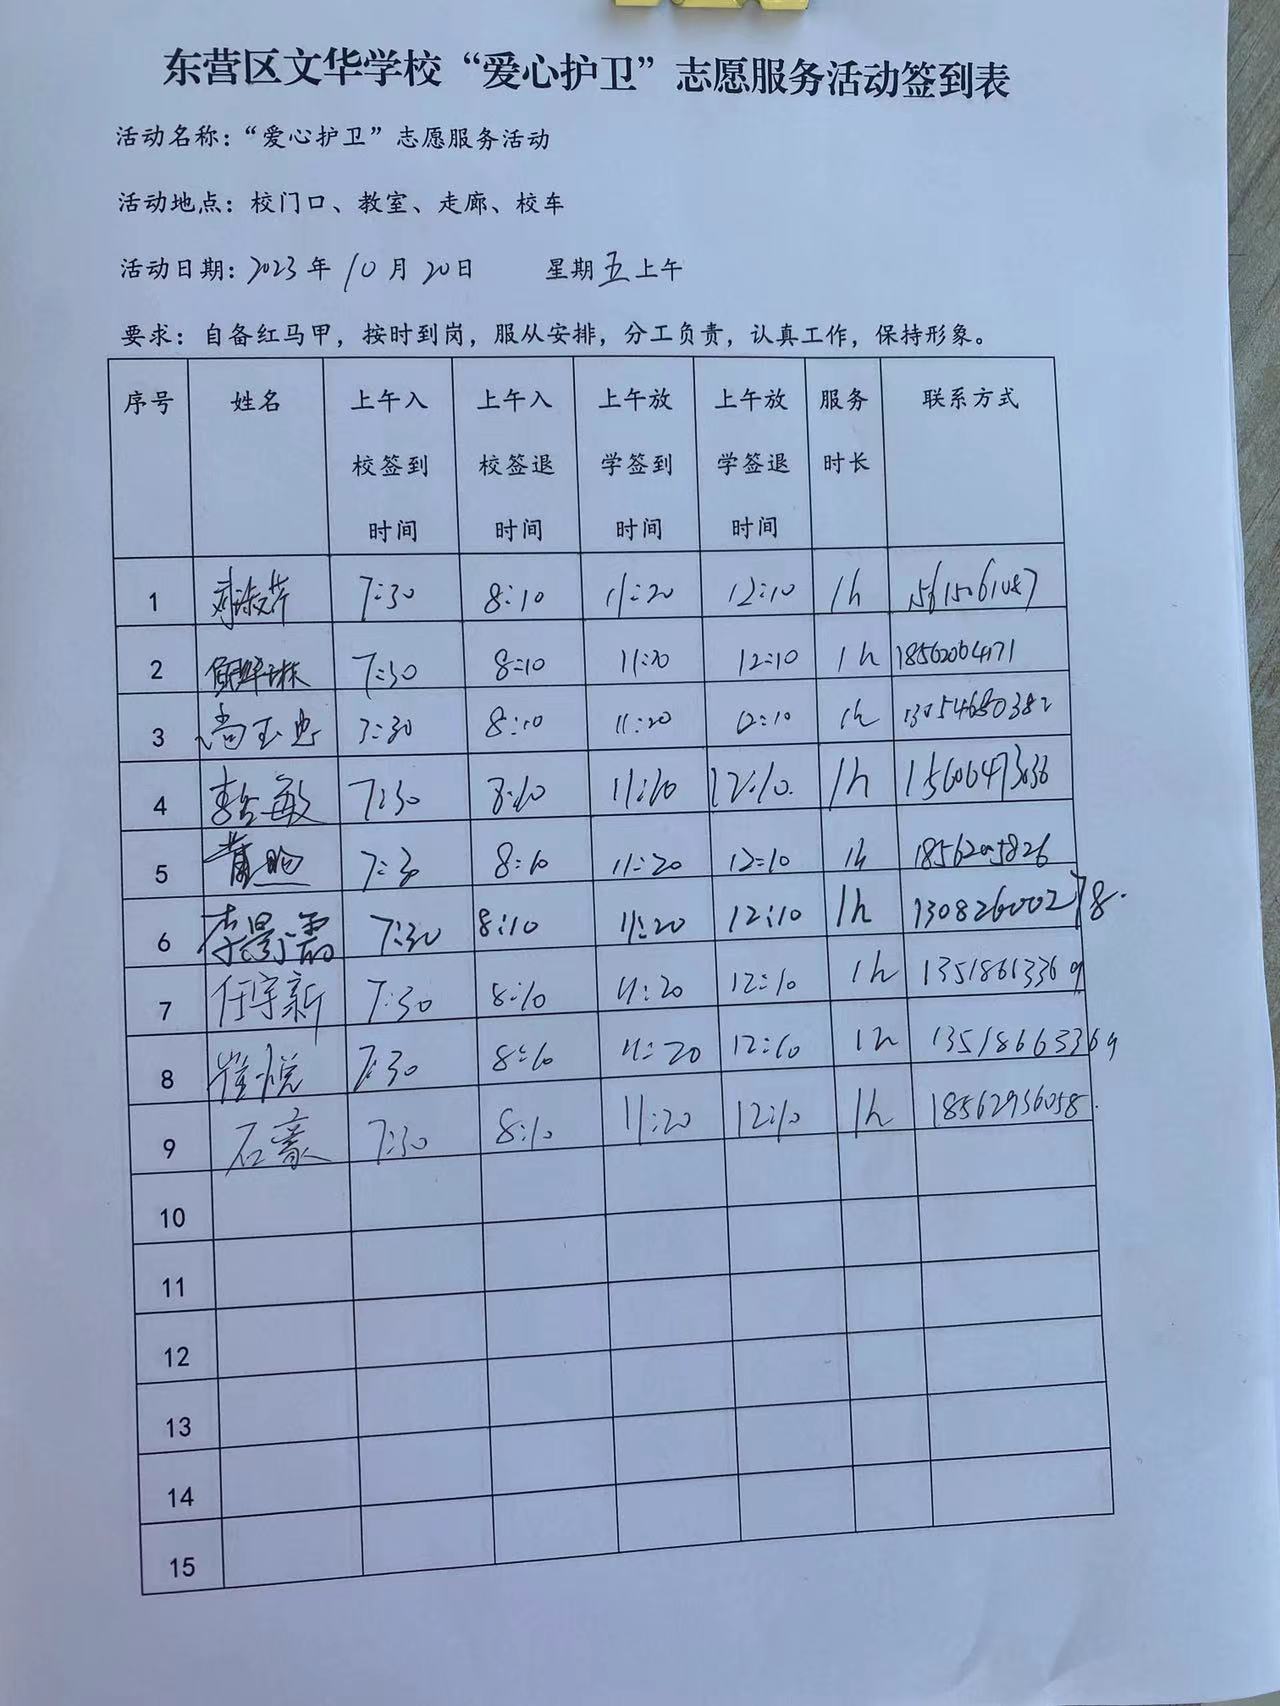 东营区文华学校“爱心护卫”志愿服务活动签到表
活动名称：“爱心护卫”志愿服务活动
活动地点：校门口、教室、走廊、校车
活动日期：2023年10月20日 星期五上午
要求：自备红马甲，按时到岗，服从安排，分工负责，认真工作，保持形象。
序号 姓名 上午入校签到时间 上午入校签退时间 上午放学签到时间 上午放学签退时间 服务时长 联系方式
1 7:30 8:10 11:20 12:10 1h 15615061087
2 7:30 8:10 11:20 12:10 1h 18562064171
3 尚玉忠 7:30 8:10 11:20 12:10 1h 13054680382
4 7:30 8:10 12:10 1h
5 7:30 8:10 11:20 12:10 1h
6 李景雷 7:30 8:10 11:20 12:10 1h 13082600278
7 任宇新 7:30 8:10 11:20 12:10 1h 13518613369
8 崔悦 7:30 8:10 11:20 12:10 1h
9 石豪 7:30 8:10 11:20 12:10 1h 18562956058
10
11
12
13
14
15